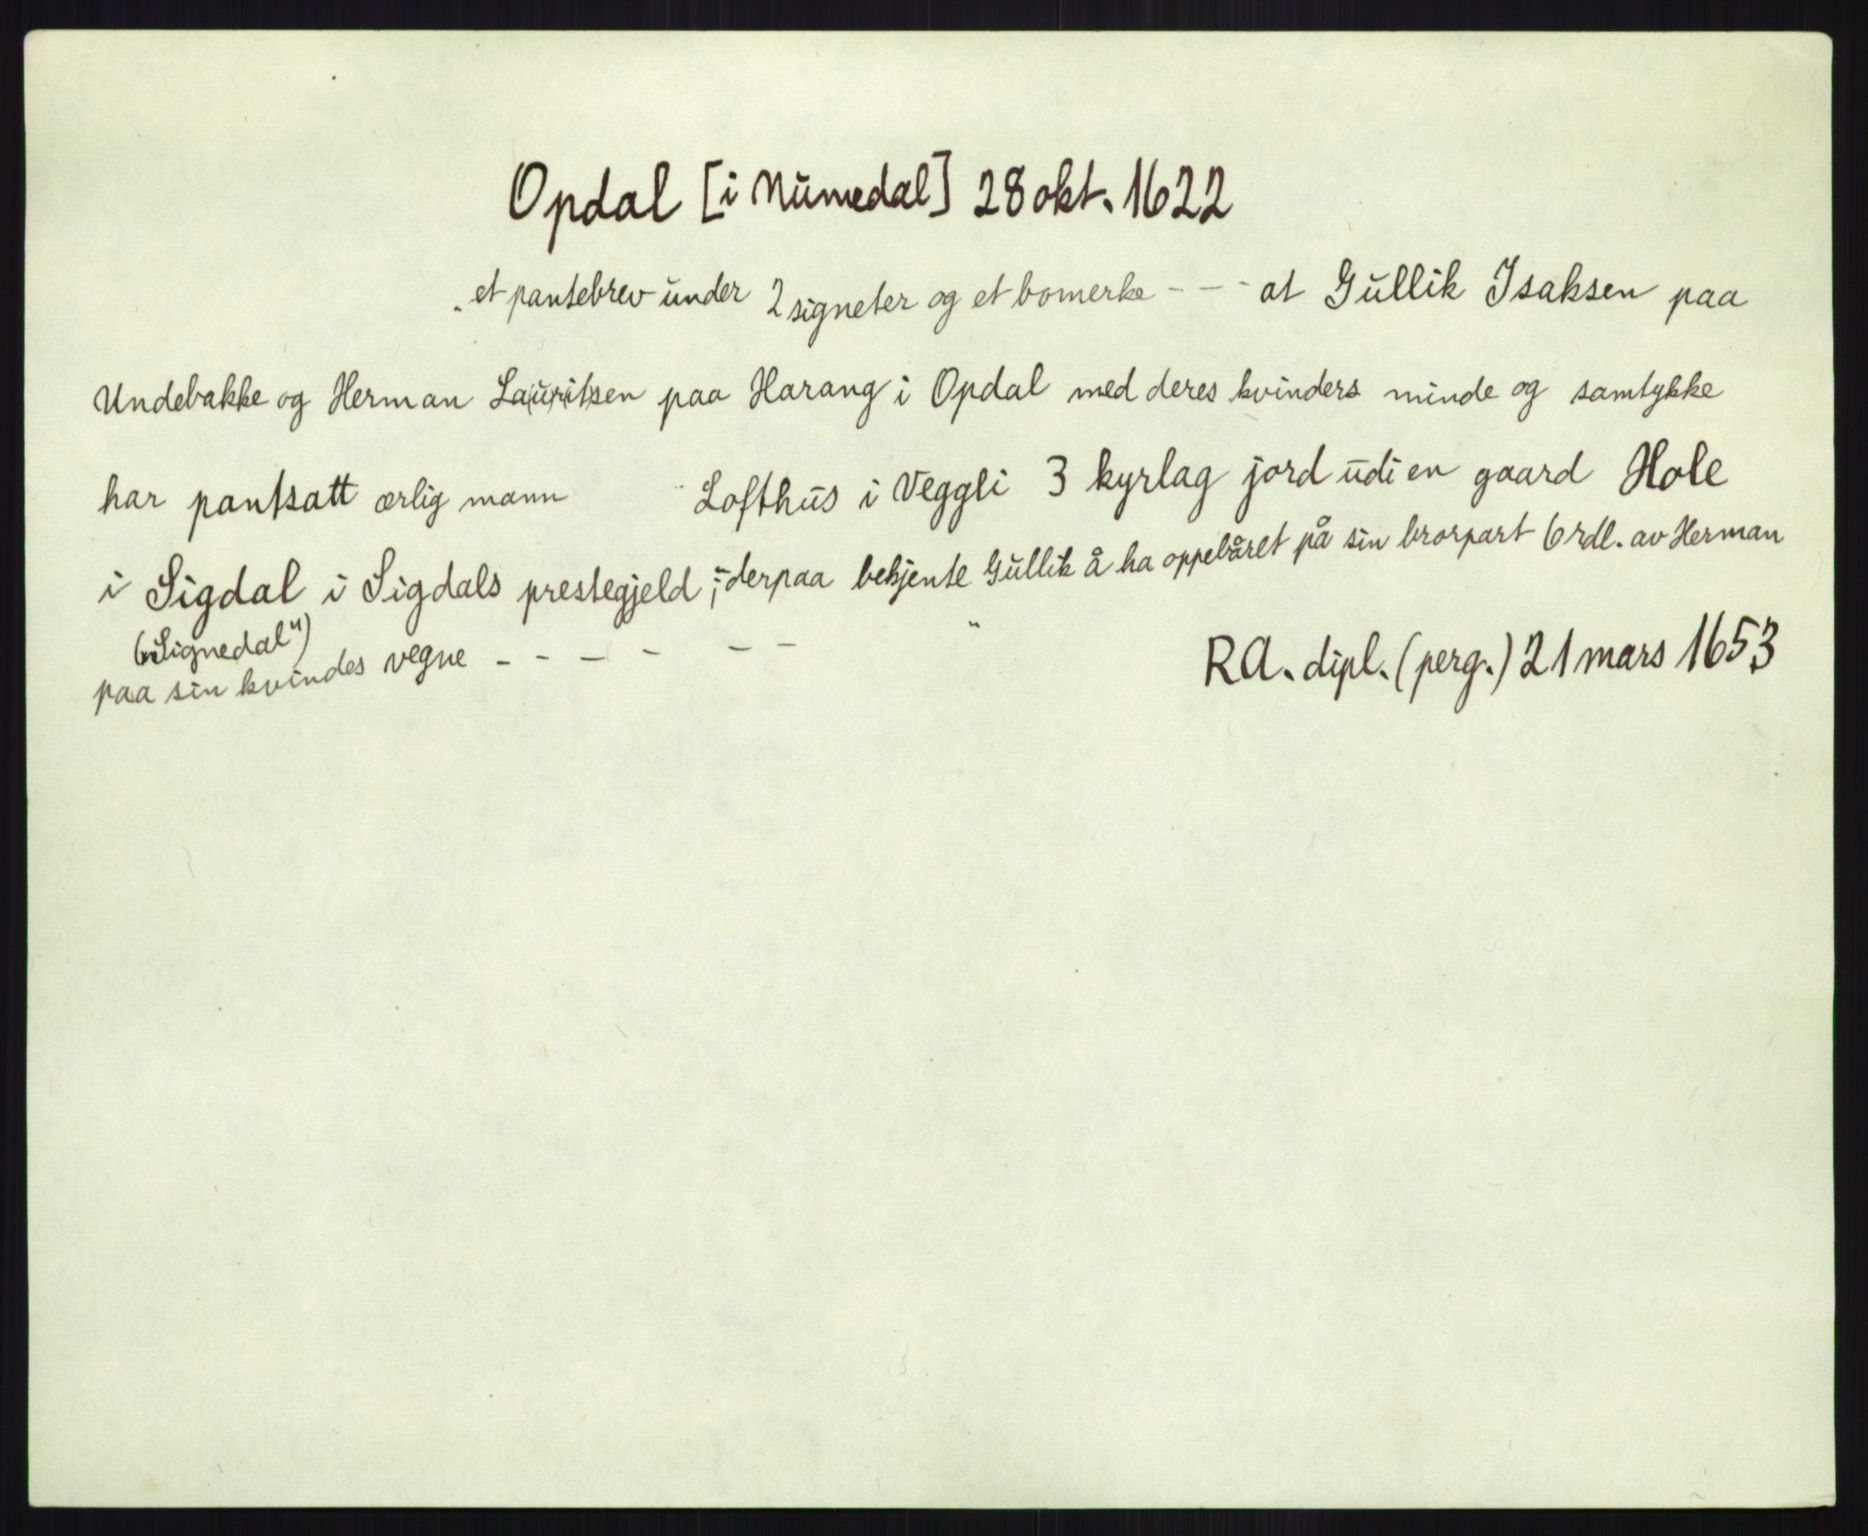 Opdal [i Numedal] 28 okt. 1622
„et pantebrev under 2 signeter og et bomerke - - - at Gullik Isaksen paa
Undebakke og Herman La(urit)sen paa Harang i Opdal med deres kvinders minde og samtykke
har pantsatt ærlig mann Lofthus i Veggli 3 kyrlag jord udi en gaard Hole
i Sigdal i Sigdals prestegjeld; derpaa bekjente Gullik å ha oppebåret på sin brorpart 6 rdl. av Herman
(„Signedal“)
paa sin kvindes vegne - - - - - - “
RA. dipl. (perg.) 21 mars 1653